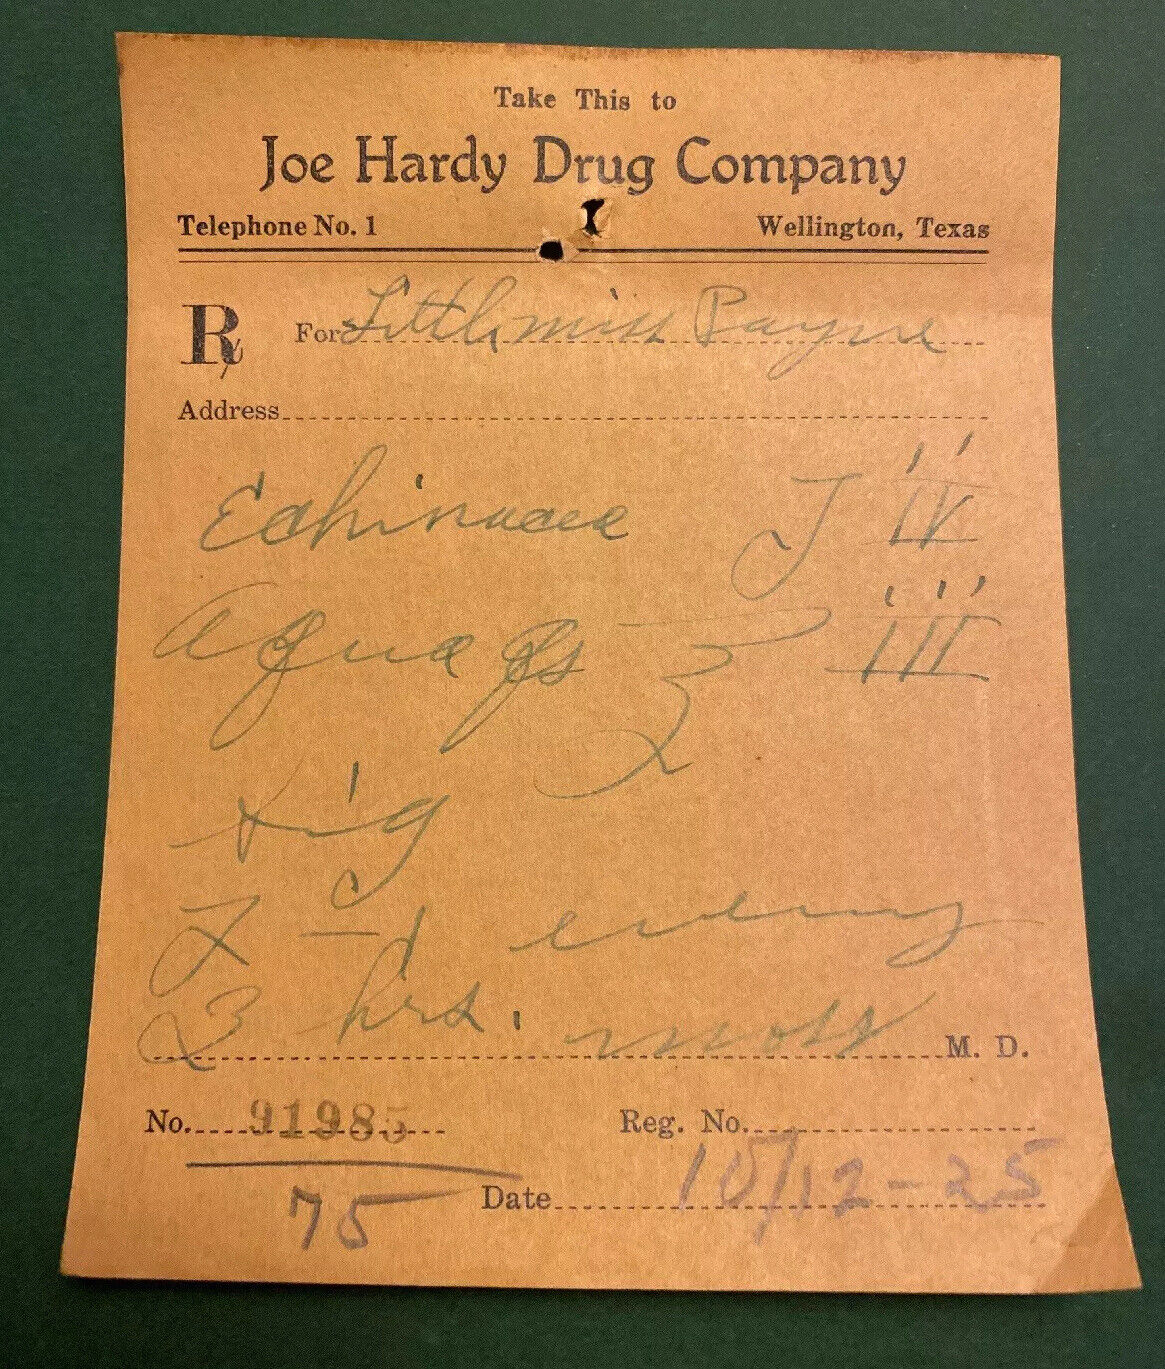 Take This to
Joe Hardy Drug Company
Telephone No. 1 Wellington, Texas
℞ For Little miss Payne
Address
Echinacea ʒ IV
Aqua qs ℥ III
Sig
every
3 hrs.
M. D.
No. 91985 Reg. No.
75 Date 10/12-25